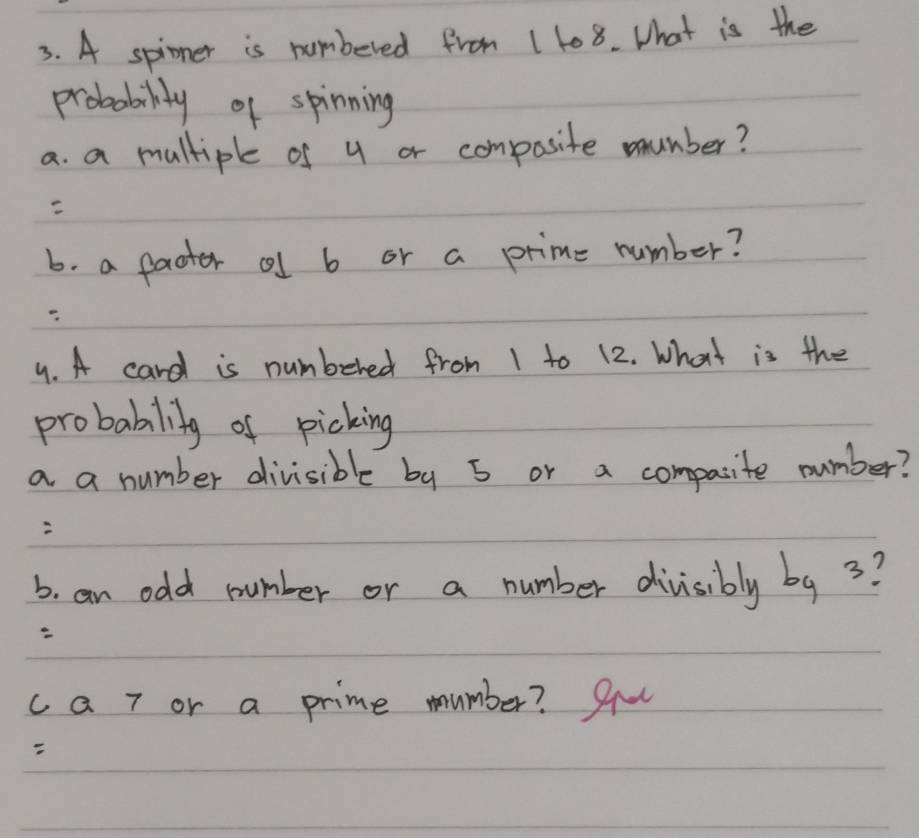 3. A spinner is numbered from 1 to 8. What is the
probability of spinning
a. a multiple of 4 or composite number?
=
b. a factor of 6 or a prime number?
=
4. A card is numbered from 1 to 12. What is the
probability of picking
a a number divisible by 5 or a composite number?
=
b. an odd number or a number divisibly by 3?
=
c a 7 or a prime number?
=